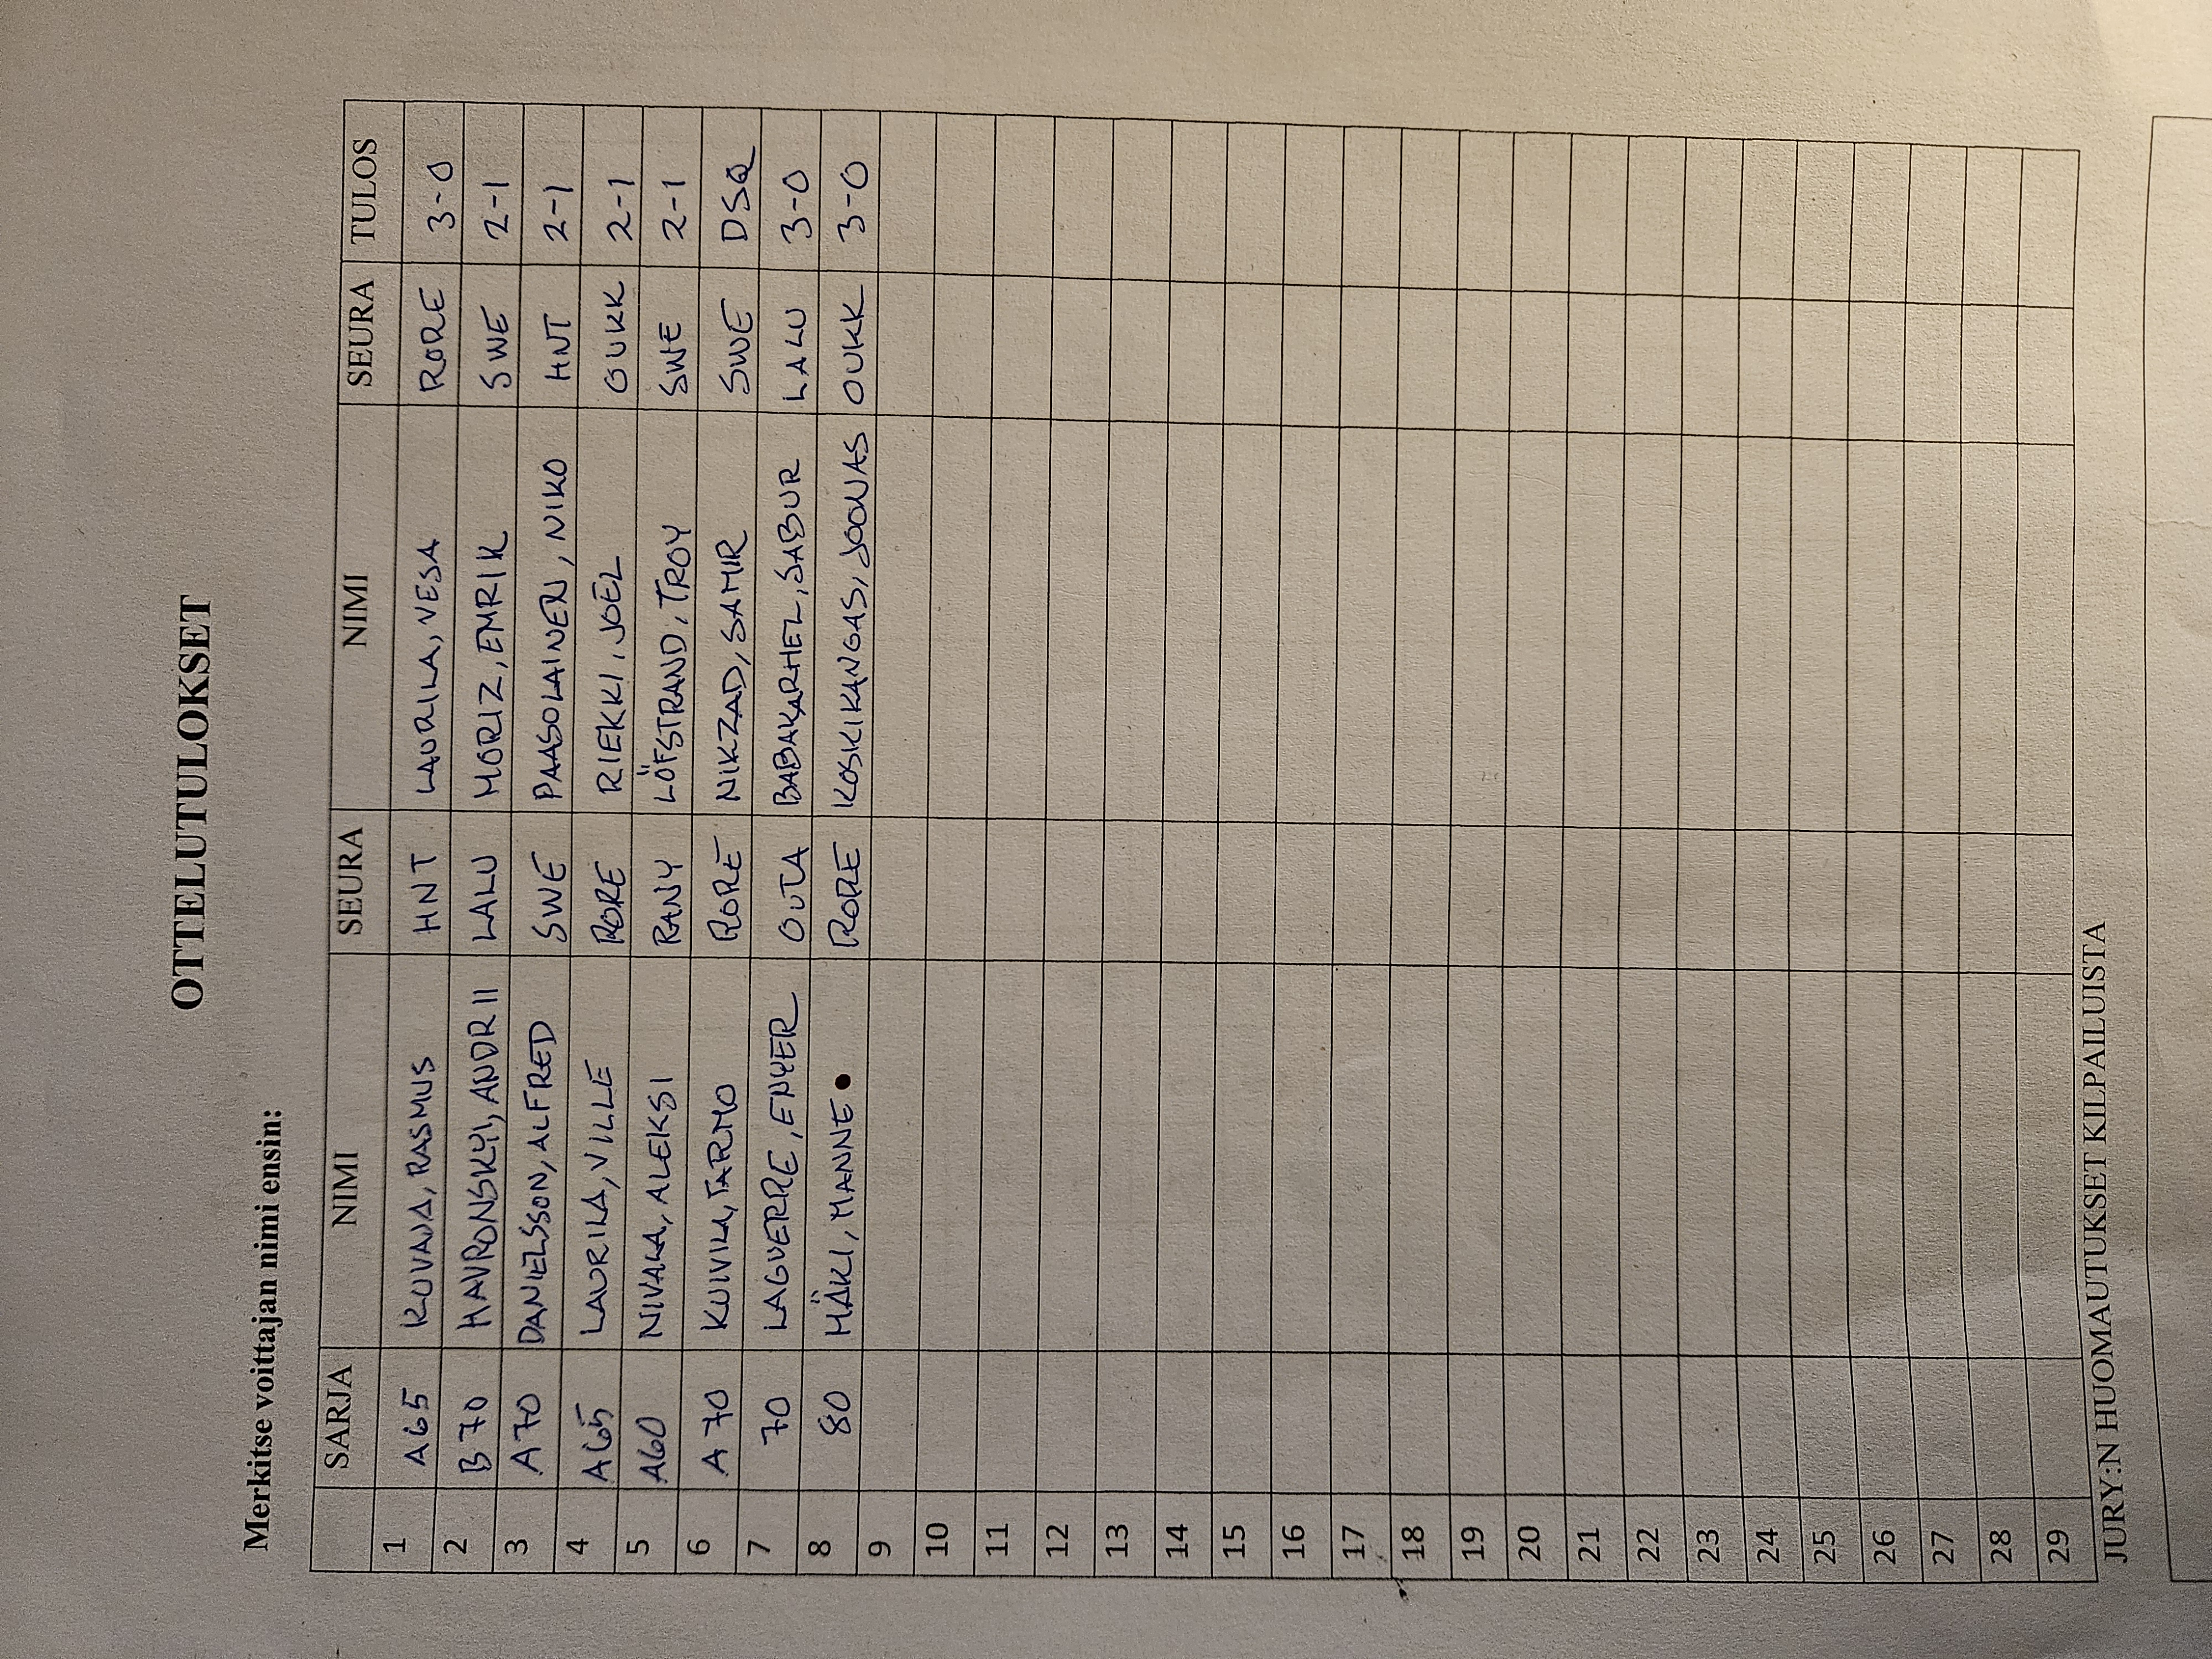 OTTELUTULOKSET
Merkitse voittajan nimi ensin:
SARJA NIMI SEURA NIMI SEURA TULOS
1 A65 KUVAJA, RASMUS HNT LAURILA, VESA RORE 3-0
2 B70 HAVRONSKYI, ANDRII LALU MORIZ, EMRIK SWE 2-1
3 A70 DANIELSSON, ALFRED SWE PAASOLAINEN, NIKO HNT 2-1
4 A65 LAURILA, VILLE RORE RIEKKI, JOEL OUKK 2-1
5 A60 NIVALA, ALEKSI RANY LÖFSTRAND, TROY SWE 2-1
6 A70 KUIVILA, TARMO RORE NIKZAD, SAMIR SWE DSQ
7 70 LAGUERRE, ENYER OUTA BABAKARHEL, SABUR LALU 3-0
8 80 MÄKI, MANNE RORE KOSKIKANGAS, JOONAS OUKK 3-0
9
10
11
12
13
14
15
16
17
18
19
20
21
22
23
24
25
26
27
28
29
JURY:N HUOMAUTUKSET KILPAILUISTA